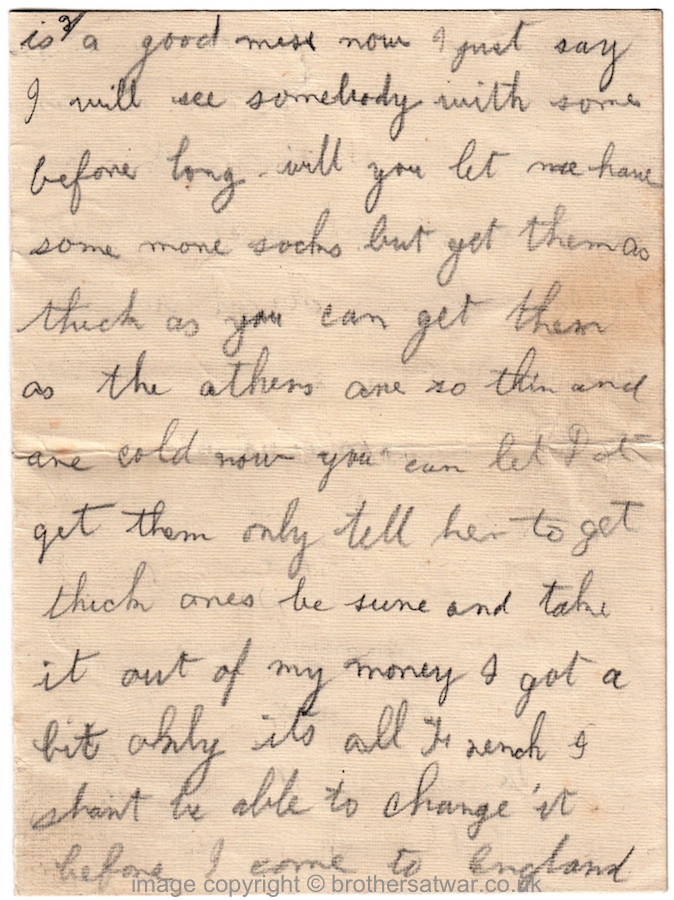 2/
is a good mess now I just say
I will see somebody with some
before long. will you let me have
some more socks but get them as
thick as you can get them
as the others are so thin and
are cold now you can let Dot
get them only tell her to get
thick ones be sure and take
it out of my money I got a
bit only its all French I
shant be able to change it
before I come to England
image copyright © brothersatwar.co.uk